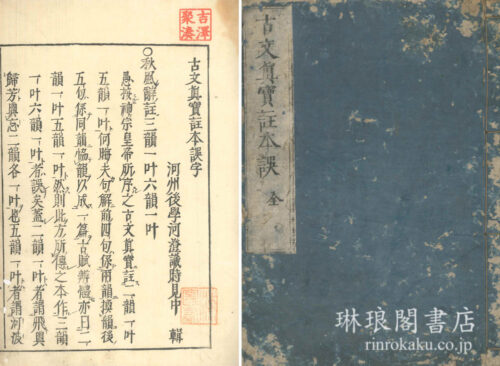 古文眞寶註本誤字
河州後學河澄 輯
○秋風辭註三韻一叶六韻一叶
愚按神宗皇帝所序之古文眞寶註二韻一叶
五韻一叶何晦夫句解前四句係兩韻換韻後
五句係同韻恊韻以成一篇古賦辨體亦曰二
韻一叶五韻一叶然則此方所傳之本作三韻
一叶六韻一叶者誤矣蓋二韻一叶者謂飛與
歸芳與忘二韻各一叶也五韻一叶者謂河波
古文眞寶註本誤 全
琳琅閣書店
rinrokaku.co.jp